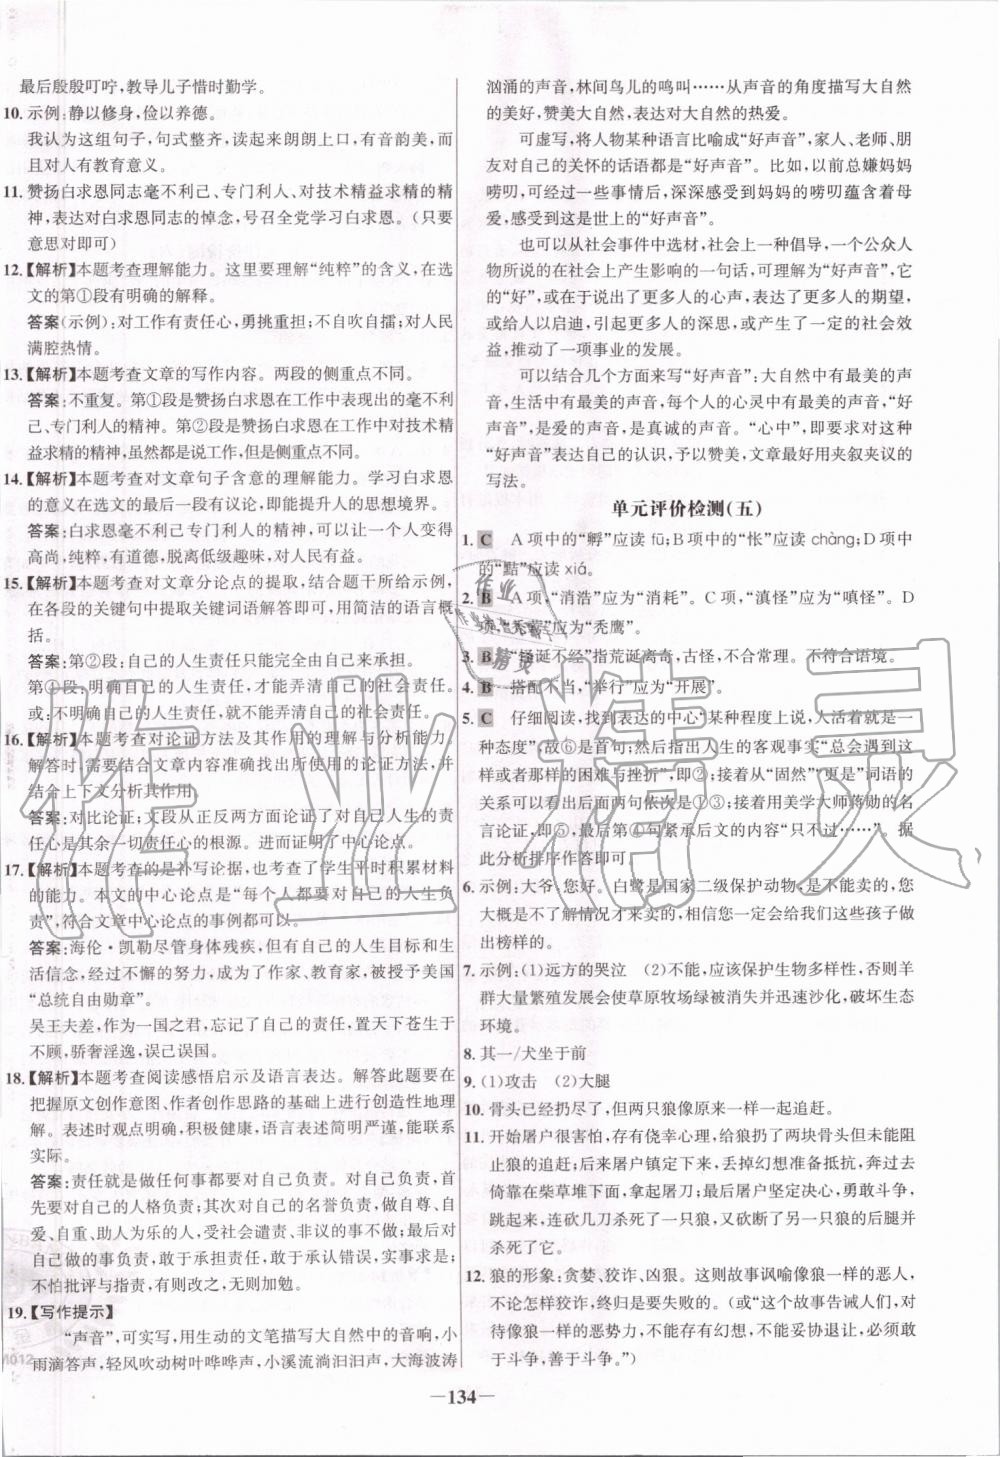 最后殷殷叮咛,教导儿子惜时勤学。
10. 示例:静以修身,俭以养德。
我认为这组句子,句式整齐,读起来朗朗上口,有音韵美,而
且对人有教育意义。
11. 赞扬白求恩同志毫不利己、专门利人、对技术精益求精的精
神,表达对白求恩同志的悼念,号召全党学习白求恩。(只要
意思对即可)
12.【解析】本题考查理解能力。这里要理解“纯粹”的含义,在选
文的第①段有明确的解释。
答案(示例):对工作有责任心,勇挑重担;不自吹自擂;对人民
满腔热情。
13.【解析】本题考查文章的写作内容。两段的侧重点不同。
答案:不重复。第①段是赞扬白求恩在工作中表现出的毫不利
己、专门利人的精神。第②段是赞扬白求恩在工作中对技术精
益求精的精神,虽然都是说工作,但侧重点不同。
14.【解析】本题考查对文章句子含意的理解能力。学习白求恩
的意义在选文的最后一段有议论,即能提升人的思想境界。
答案:白求恩毫不利己专门利人的精神,可以让一个人变得
高尚,纯粹,有道德,脱离低级趣味,对人民有益。
15.【解析】本题考查对文章分论点的提取,结合题干所给示例,
在各段的关键句中提取关键词语解答即可,用简洁的语言概
括。
答案:第②段:自己的人生责任只能完全由自己来承担。
第④段:弄清自己的人生责任,才能弄清自己的社会责任。
或:不明确自己的人生责任,就不能弄清自己的社会责任。
16.【解析】本题考查对论证方法及其作用的理解与分析能力。
解答时,需要结合文章内容准确找出所使用的论证方法,并
结合上下文分析其作用。
答案:对比论证;文段从正反两方面论证了对自己的人生责
任心是其余一切责任心的根源。进而证明了中心论点。
17.【解析】本题考查的是补写论据,也考查了学生平时积累材料
的能力。本文的中心论点是“每个人都要对自己的人生负
责”,符合文章中心论点的事例都可以。
答案:海伦·凯勒尽管身体残疾,但有自己的人生目标和生
活信念,经过不懈的努力,成为了作家、教育家,被授予美国
“总统自由勋章”。
吴王夫差,作为一国之君,忘记了自己的责任,置天下苍生于
不顾,骄奢淫逸,误己误国。
18.【解析】本题考查阅读感悟启示及语言表达。解答此题要在
把握原文创作意图、作者创作思路的基础上进行创造性地理
解。表述时观点明确,积极健康,语言表述简明严谨,能联系
实际。
答案:责任就是做任何事都要对自己负责。对自己负责,首
先要对自己的人格负责;其次对自己的名誉负责,做自尊、自
爱、自重、助人为乐的人,受社会谴责、非议的事不做;最后对
自己做的事负责,敢于承担责任,敢于承认错误,实事求是;
不怕批评与指责,有则改之,无则加勉。
19.【写作提示】
“声音”,可实写,用生动的文笔描写大自然中的音响,小
雨滴答声,轻风吹动树叶哗哗声,小溪流淌汩汩声,大海波涛
汹涌的声音,林间鸟儿的鸣叫……从声音的角度描写大自然
的美好,赞美大自然,表达对大自然的热爱。
可虚写,将人物某种语言比喻成“好声音”,家人、老师、朋
友对自己的关怀的话语都是“好声音”。比如,以前总嫌妈妈
唠叨,可经过一些事情后,深深感受到妈妈的唠叨蕴含着母
爱,感受到这是世上的“好声音”。
也可以从社会事件中选材,写“好声音”,一个公众人
物所说的在社会上产生影响的一句话,可理解为“好声音”,它
的“好”,或在于说出了更多人的心声,或表达了更多人的期望,
或给人以启迪,引起更多人的深思,或产生了一定的社会效
益,推动了一项事业的发展。
可以结合几个方面来写“好声音”:大自然中有最美的声
音,生活中有最美的声音,每个人的心灵中有最美的声音,“好
声音”,是爱的声音,是真诚的声音。“心中”,即要求对这种
“好声音”表达自己的认识,予以赞美,文章最好用夹叙夹议的
写法。
单元评价检测(五)
1. C A项中的“孵”应读fū;B项中的“怅”应读chàng;D项中
的“黠”应读xiá。
2. B A项,“消浩”应为“消耗”。C项,“滇怪”应为“嗔怪”。D
项,“秃鹫”应为“秃鹰”。
3. B “怪诞不经”指荒诞离奇,古怪,不合常理。不符合语境。
4. B 搭配不当,“举行”应为“开展”。
5. C 仔细阅读,找到表达的中心“某种程度上说,人活着就是一
种态度”,故⑥是首句;然后指出人生的客观事实“总会遇到这
样或者那样的困难与挫折”,即②;接着从“固然”“更是”词语的
关系可以看出后面两句依次是①③;接着用美学大师蒋勋的名
言论证,即⑤,最后第④句紧承后文的内容“只不过……”。据
此分析排序作答即可。
6. 示例:大爷,您好。白鹭是国家二级保护动物,是不能卖的,您
大概是不了解情况才来卖的,相信您一定会给这些孩子做
出榜样的。
7. 示例:(1)远方的哭泣 (2)不能,应该保护生物多样性,否则羊
群大量繁殖发展会使草原牧场绿被消失并迅速沙化,破坏生态
环境。
8. 其一/犬坐于前
9. (1)攻击 (2)大腿
10. 骨头已经扔尽了,但两只狼像原来一样一起追赶。
11. 开始屠户很害怕,存有侥幸心理,给狼扔了两块骨头但未能阻
止狼的追赶;后来屠户镇定下来,丢掉幻想准备抵抗,奔过去
倚靠在柴草堆下面,拿起屠刀;最后屠户坚定决心,勇敢斗争,
跳起来,连砍几刀杀死了一只狼,又砍断了另一只狼的后腿并
杀死了它。
12. 狼的形象:贪婪、狡诈、凶狠。这则故事讽喻像狼一样的恶人,
不论怎样狡诈,终归是要失败的。(或“这个故事告诫人们,对
待像狼一样的恶势力,不能存有幻想、妥协退让,必须敢于斗
争,善于斗争。”)
—134—
作业精灵